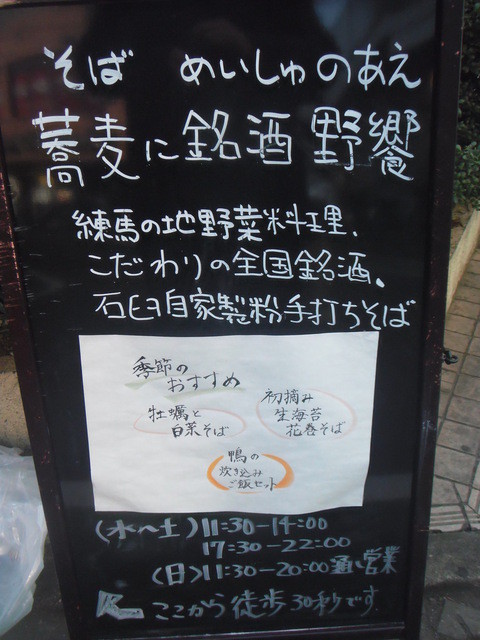 そば めいしゅ のあえ
蕎麦に銘酒 野饗
練馬の地野菜料理、
こだわりの全国銘酒。
石臼自家製粉手打ちそば
季節の
おすすめ
牡蠣と
白菜そば
初摘み
生海苔
花巻そば
鴨の
炊き込み
ご飯セット
(水〜土)11:30-14:00
17:30-22:00
(日)11:30-20:00通し営業
ここから徒歩30秒です